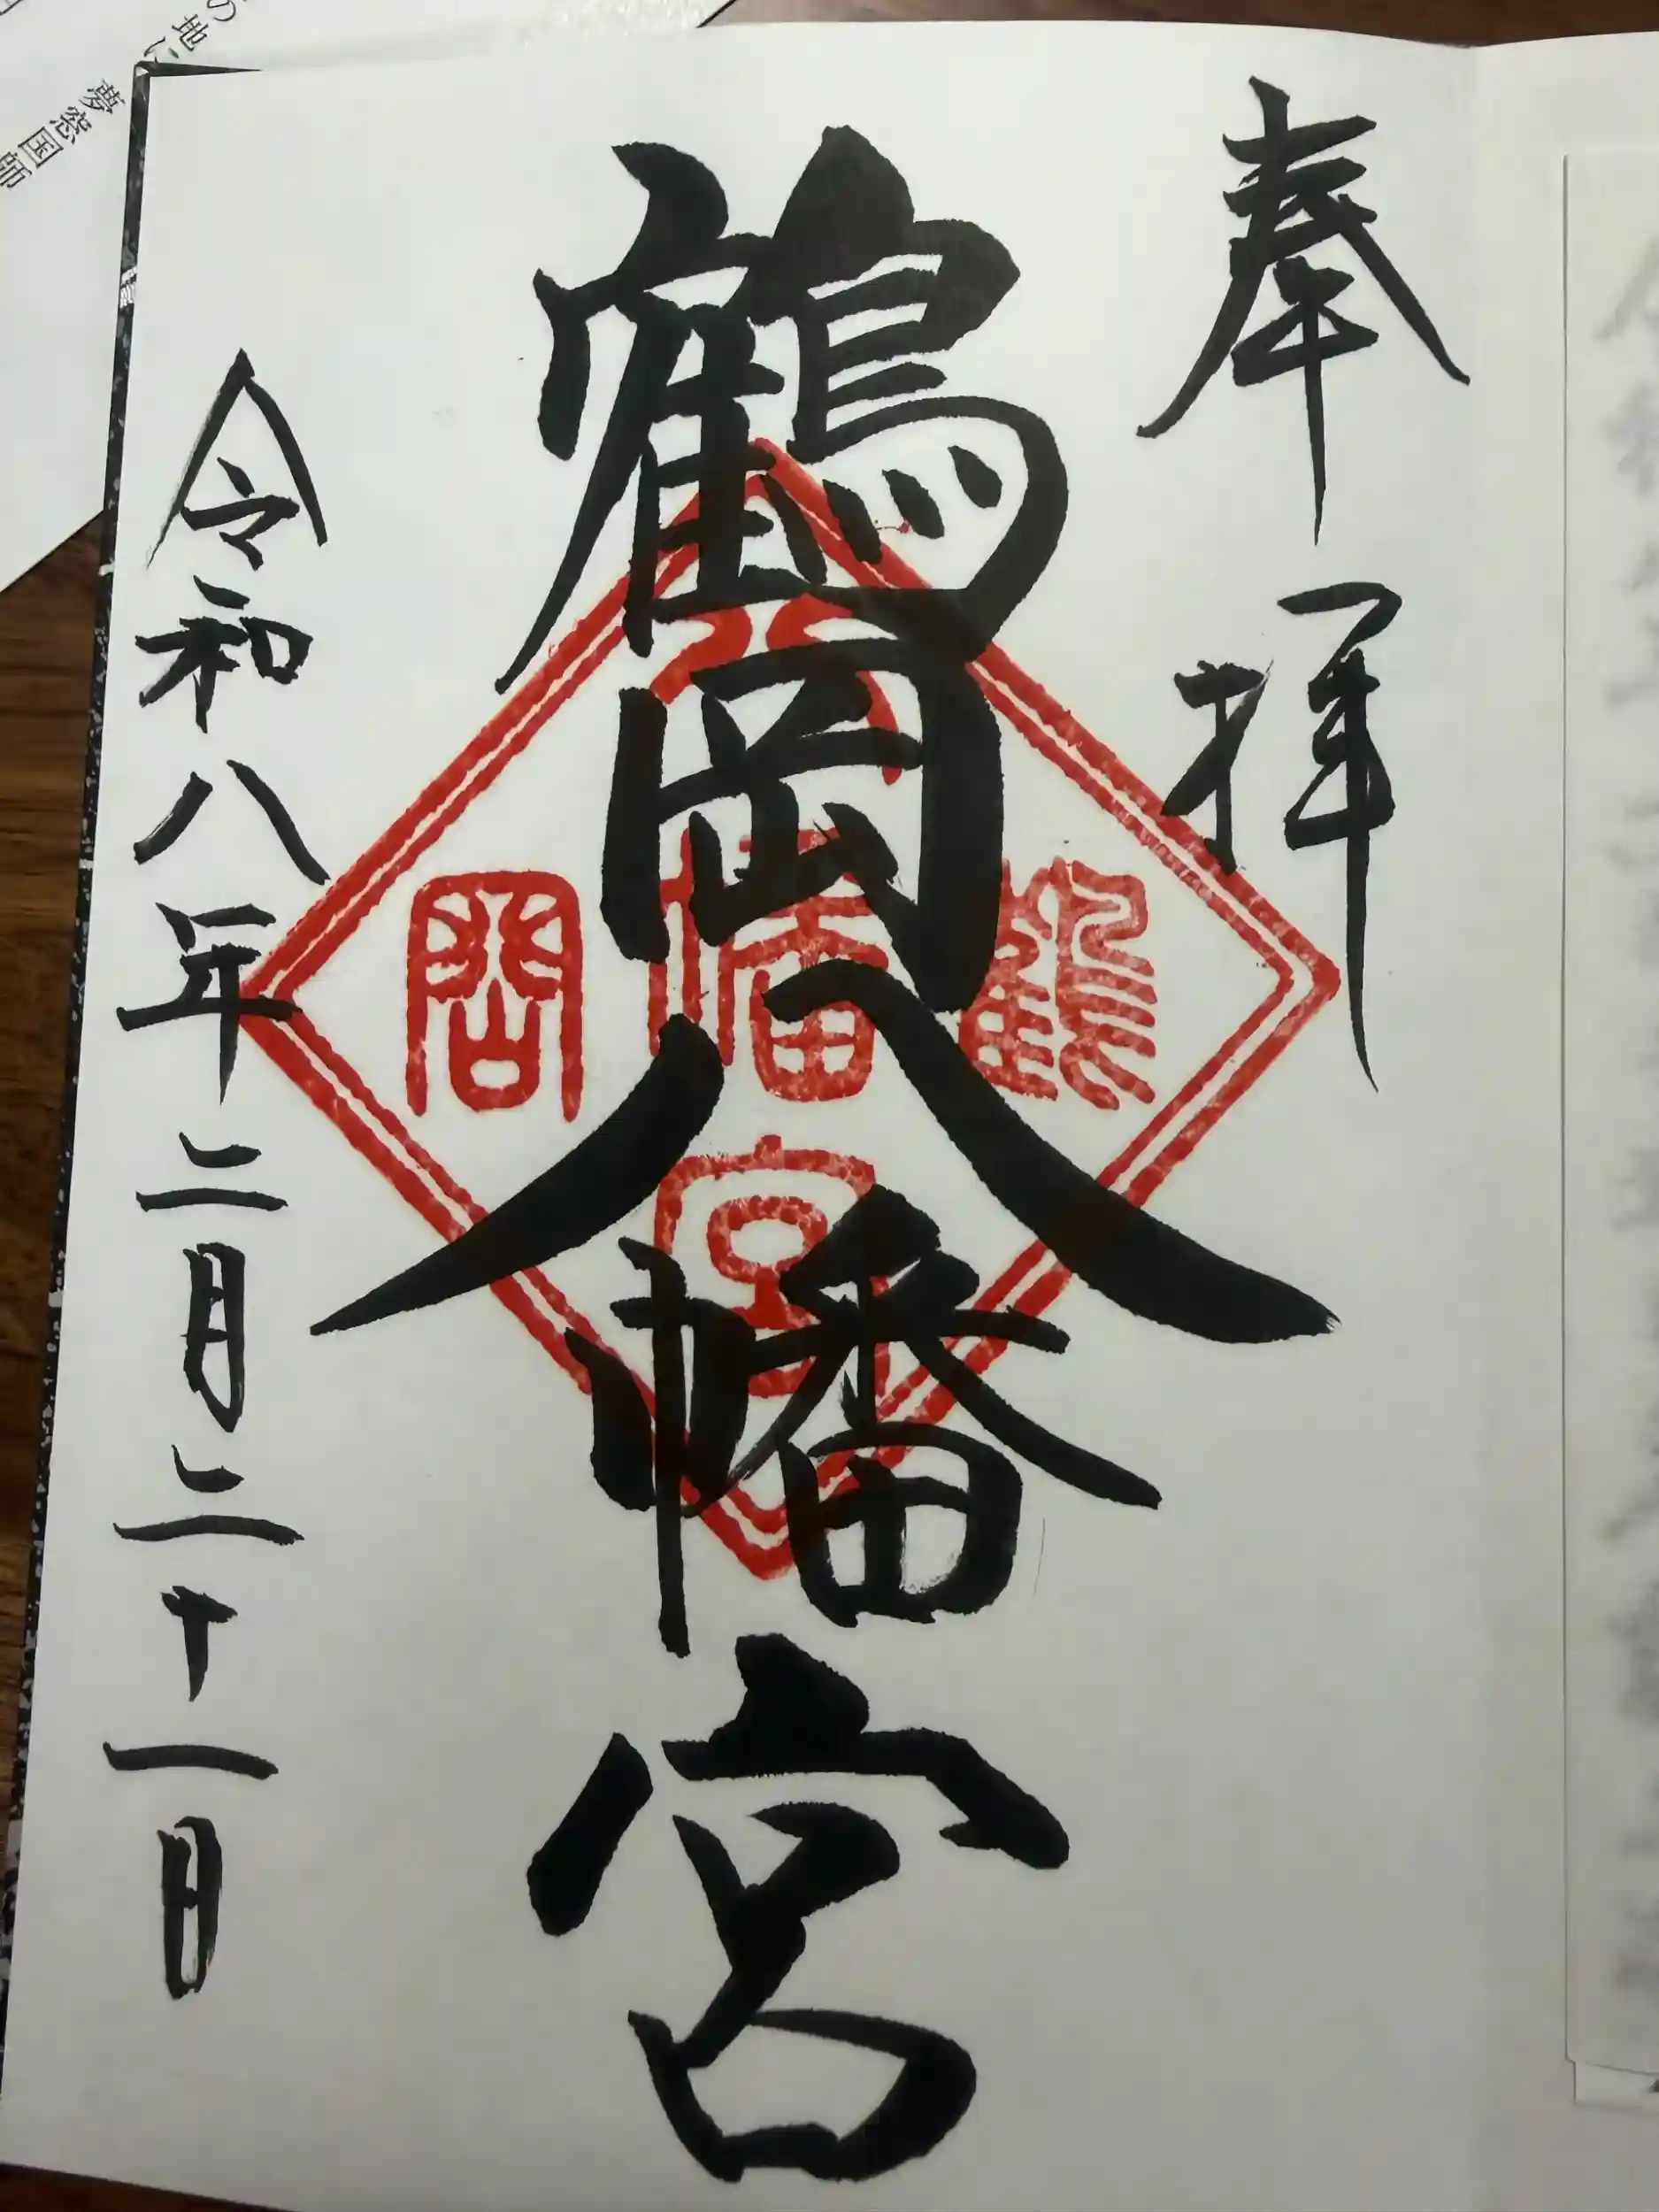 奉拝
鶴岡八幡宮
令和八年二月二十一日
鶴
八幡宮
岡
の地に
夢窓国師